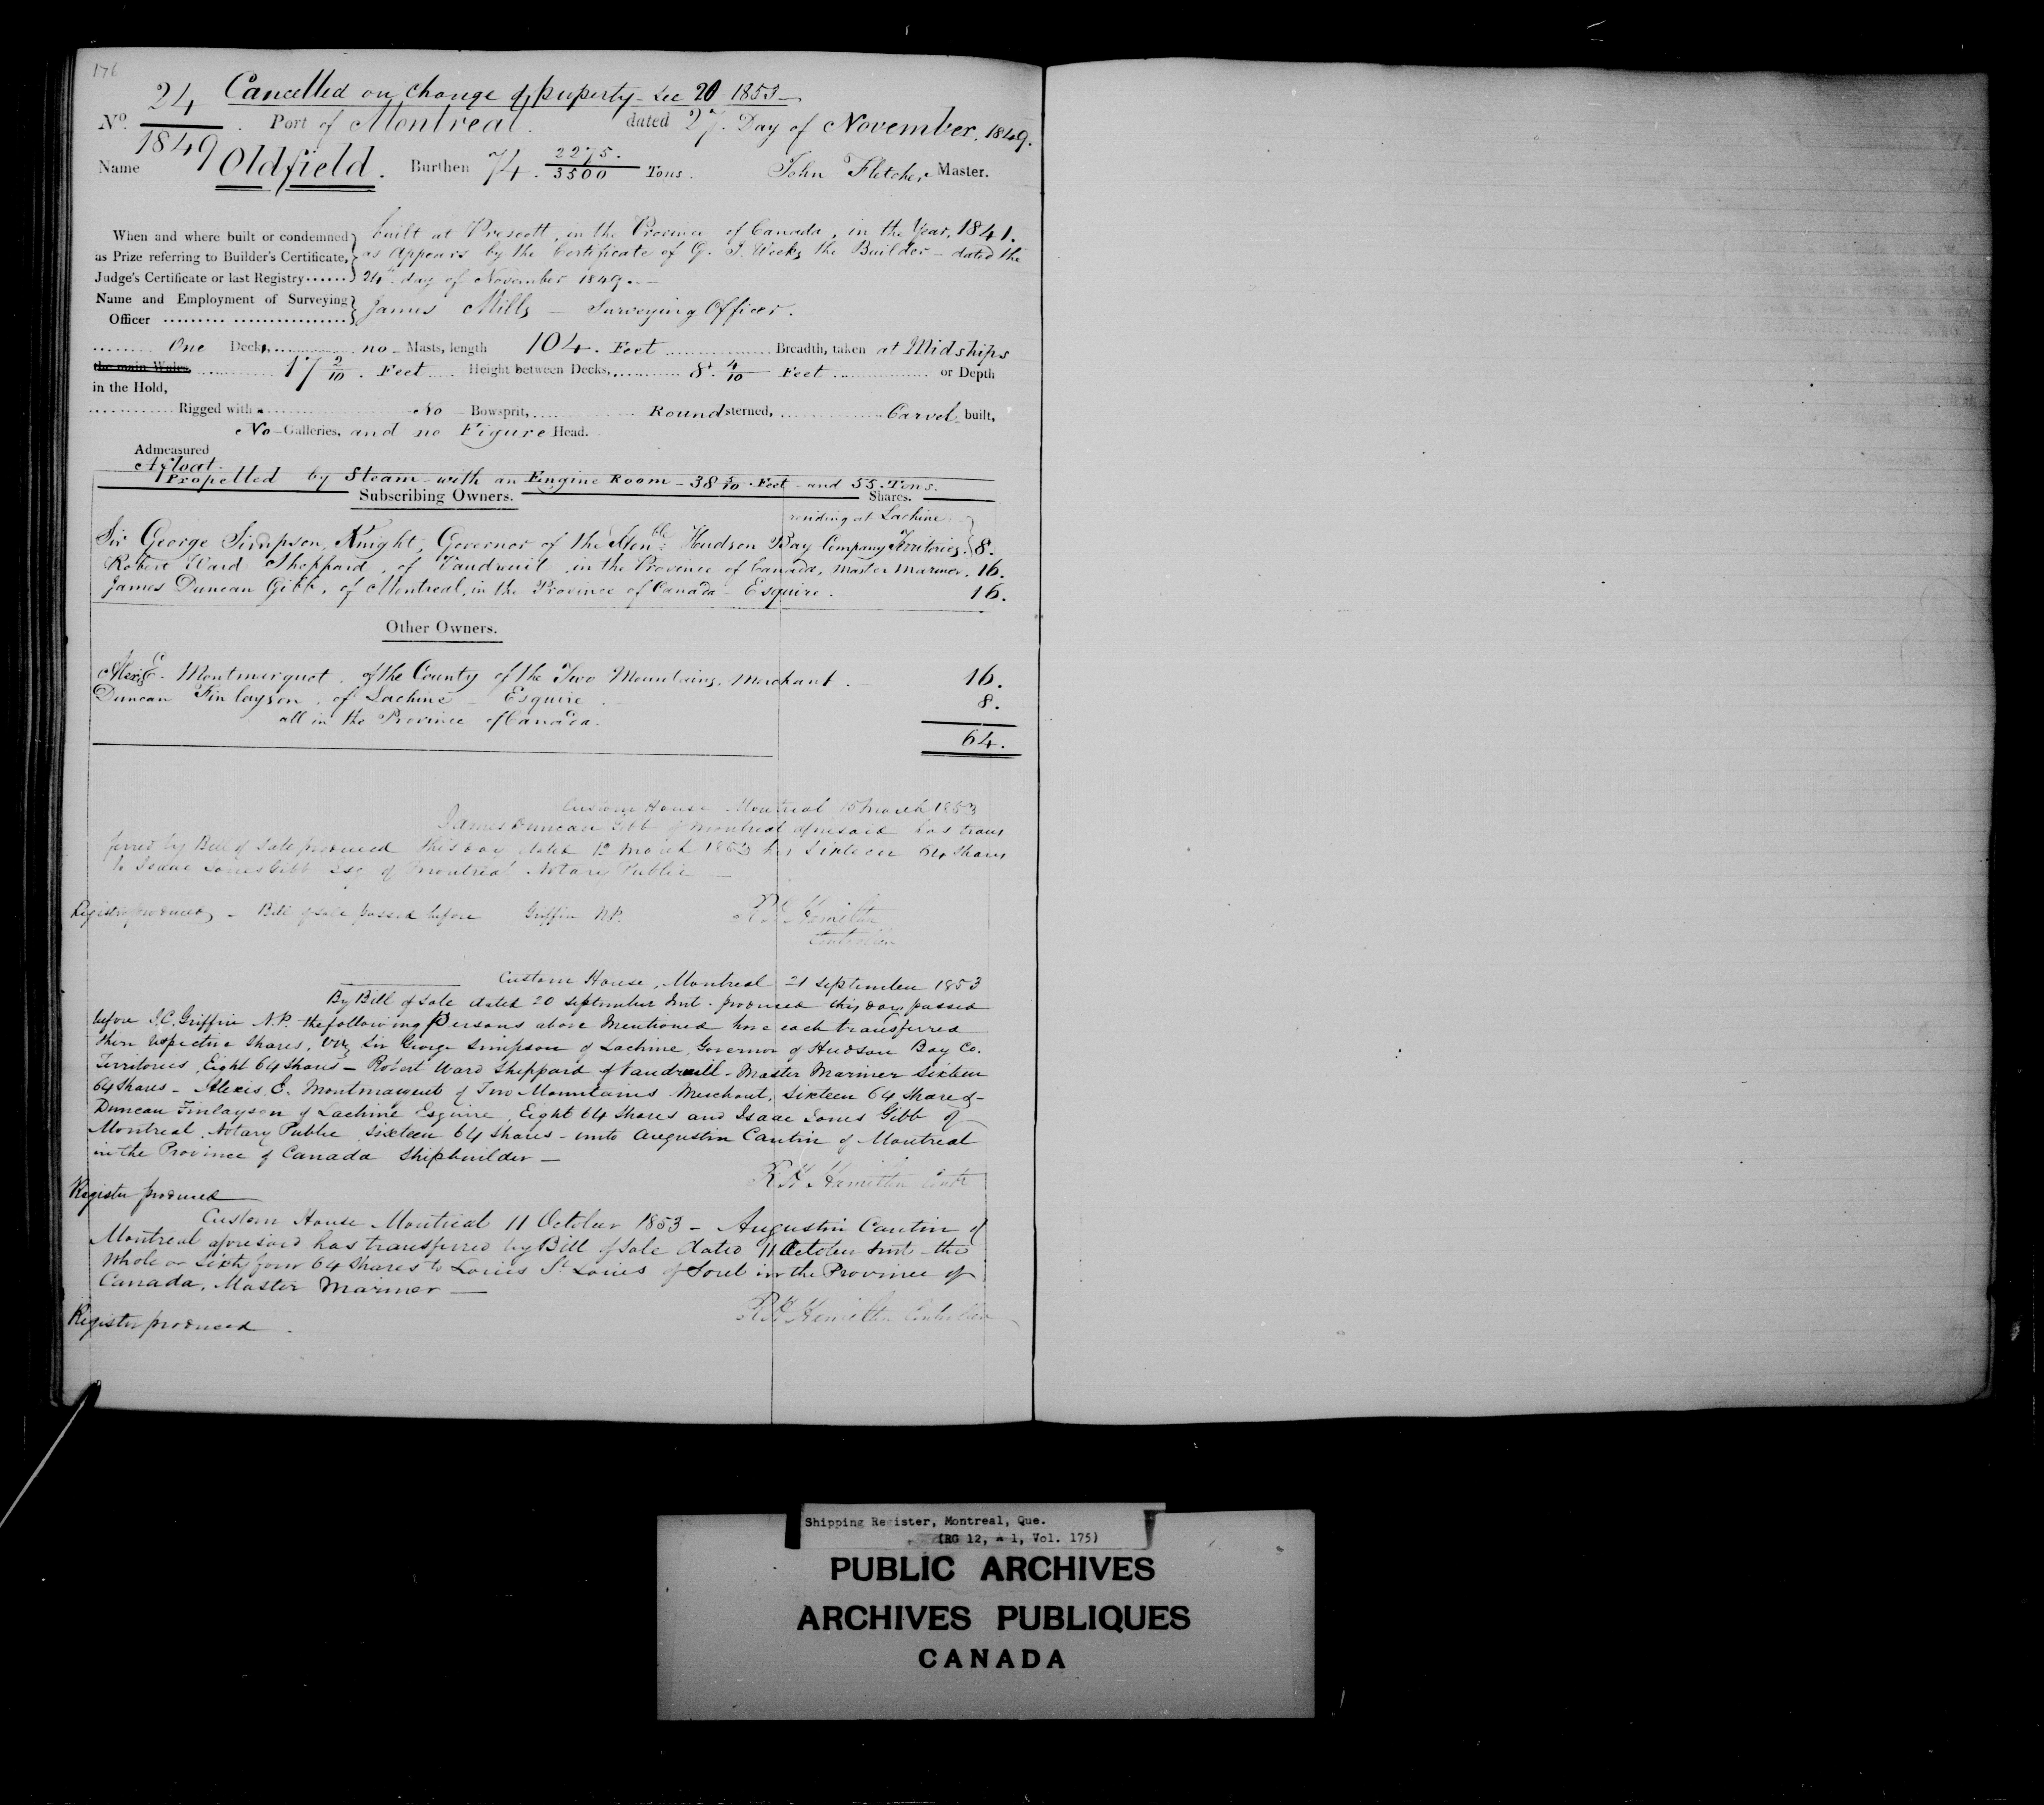 176
Cancelled on change of property - see 20 1853 -
No. 24/1849. Port of Montreal. dated 27. Day of November, 1849.
Name Oldfield. Burthen 74. 2275./3500 Tons. John Fletcher Master.
When and where built or condemned as Prize referring to Builder's Certificate, Judge's Certificate or last Registry......
built at Prescott, in the Province of Canada, in the Year, 1841.
as Appears by the Certificate of G. J. Weeks the Builder - dated the
24th day of November 1849. -
Name and Employment of Surveying Officer
James Mills - Surveying Officer.
One Decks, no - Masts, length 104. Feet Breadth, taken at Midships
the main Wales 17 2/10. Feet Height between Decks, 8. 4/10 Feet or Depth
in the Hold,
Rigged with No Bowsprit, Round sterned, Carvel built,
No Galleries, and no Figure Head.
Admeasured
Afloat.
Propelled by Steam with an Engine Room - 38 5/10. Feet - and 55. Tons.
Subscribing Owners. Shares.
residing at Lachine
Sir George Simpson, Knight, Governor of the Honble. Hudson Bay Company Territories. 8.
Robert Ward Sheppard, of Vaudreuil, in the Province of Canada, Master Mariner. 16.
James Duncan Gibb, of Montreal, in the Province of Canada - Esquire. 16.
Other Owners.
Alexis E. Montmarquet, of the County of the Two Mountains, Merchant. - 16.
Duncan Finlayson, of Lachine - Esquire. 8.
all in the Province of Canada.
64.
Custom House Montreal 15 March 1853
James Duncan Gibb of Montreal aforesaid has trans
ferred by Bill of Sale produced this day dated 12 March 1853 his Sixteen 64 Shares
to Isaac Jones Gibb Esq of Montreal Notary Public
Register produced - Bill of Sale passed before Griffin N.P. R H Hamilton
Controller
Custom House, Montreal 21 September 1853
By Bill of Sale dated 20 September Inst. produced this day passed
before J.C. Griffin N.P. the following Persons above Mentioned have each transferred
their respective Shares, viz Sir George Simpson of Lachine, Governor of Hudson Bay Co.
Territories, Eight 64 Shares - Robert Ward Sheppard of Vaudreuil - Master Mariner Sixteen
64 Shares - Alexis E. Montmarquet of Two Mountains Merchant, Sixteen 64 Shares -
Duncan Finlayson of Lachine Esquire, Eight 64 Shares and Isaac Jones Gibb of
Montreal, Notary Public Sixteen 64 Shares - unto Augustin Cantin of Montreal
in the Province of Canada Shipbuilder -
R H Hamilton Contr
Register produced
Custom House Montreal 11 October 1853 - Augustin Cantin of
Montreal aforesaid has transferred by Bill of Sale dated 11 October Inst - the
Whole or Sixty four 64 Shares to Louis St. Louis of Sorel in the Province of
Canada, Master Mariner -
R H Hamilton Controller
Register produced.
Shipping Register, Montreal, Que.
(RG 12, A 1, Vol. 175)
PUBLIC ARCHIVES
ARCHIVES PUBLIQUES
CANADA